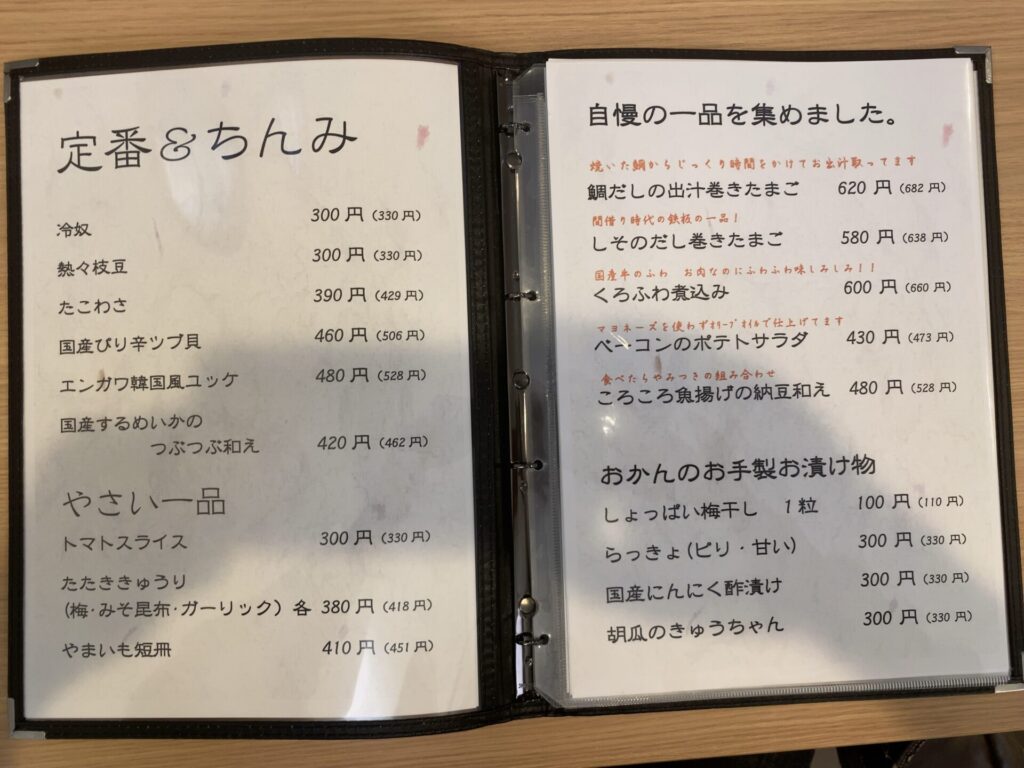 定番&ちんみ
冷奴 300円(330円)
熱々枝豆 300円(330円)
たこわさ 390円(429円)
国産ぴり辛ツブ貝 460円(506円)
エンガワ韓国風ユッケ 480円(528円)
国産するめいかの
つぶつぶ和え 420円(462円)
やさい一品
トマトスライス 300円(330円)
たたききゅうり
(梅・みそ昆布・ガーリック)各 380円(418円)
やまいも短冊 410円(451円)
自慢の一品を集めました。
焼いた鯛からじっくり時間をかけてお出汁取ってます
鯛だしの出汁巻きたまご 620円(682円)
間借り時代の鉄板の一品!
しそのだし巻きたまご 580円(638円)
国産牛のふわ お肉なのにふわふわ味しみしみ!!
くろふわ煮込み 600円(660円)
マヨネーズを使わずｵﾘｰﾌﾞｵｲﾙで仕上げてます
ベーコンのポテトサラダ 430円(473円)
食べたらやみつきの組み合わせ
ころころ魚揚げの納豆和え 480円(528円)
おかんのお手製お漬け物
しょっぱい梅干し 1粒 100円(110円)
らっきょ(ピリ・甘い) 300円(330円)
国産にんにく酢漬け 300円(330円)
胡瓜のきゅうちゃん 300円(330円)